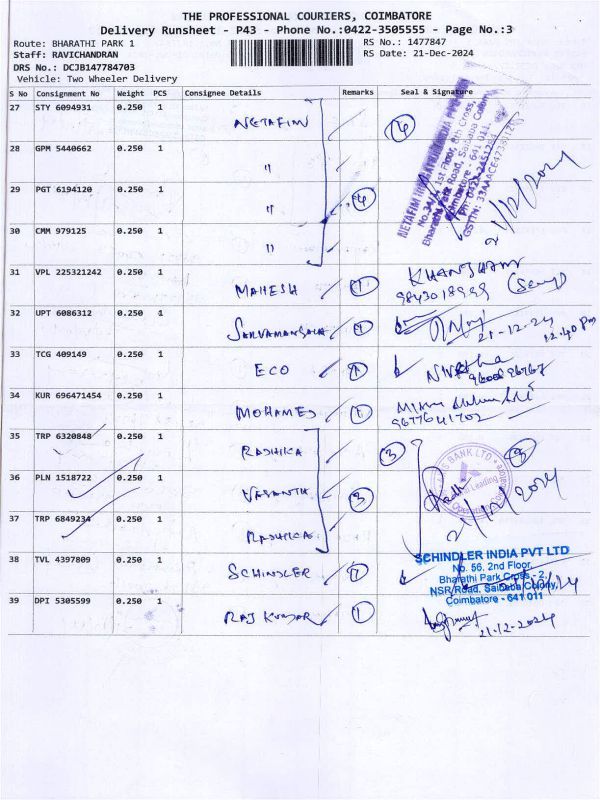 THE PROFESSIONAL COURIERS, COIMBATORE
Delivery Runsheet - P43 - Phone No.:0422-3505555 - Page No.:3
Route: BHARATHI PARK 1 RS No.: 1477847
Staff: RAVICHANDRAN RS Date: 21-Dec-2024
DRS No.: DCJB147784703
Vehicle: Two Wheeler Delivery
S No Consignment No Weight PCS Consignee Details Remarks Seal & Signature
27 STY 6094931 0.250 1 NETAFIM 4
28 GPM 5440662 0.250 1 "
29 PGT 6194120 0.250 1 " 4
30 CMM 979125 0.250 1 "
31 VPL 225321242 0.250 1 MAHESH 1
9843018999
32 UPT 6086312 0.250 1 SARVAMANGALA 1 21-12-24
12.40 pm
33 TCG 409149 0.250 1 ECO 1
34 KUR 696471454 0.250 1 MOHAMED 1
9677641702
35 TRP 6320848 0.250 1 RADHIKA 3
36 PLN 1518722 0.250 1 VASANTH 3 21/12/2024
37 TRP 6849234 0.250 1 RADHIKA
38 TVL 4397809 0.250 1 SCHINDLER 1
SCHINDLER INDIA PVT LTD
No. 56, 2nd Floor,
Bharathi Park Cross - 2,
NSR Road, Saibaba Colony,
Coimbatore - 641 011
39 DPI 5305599 0.250 1 RAJ KUMAR 1
21-12-2024